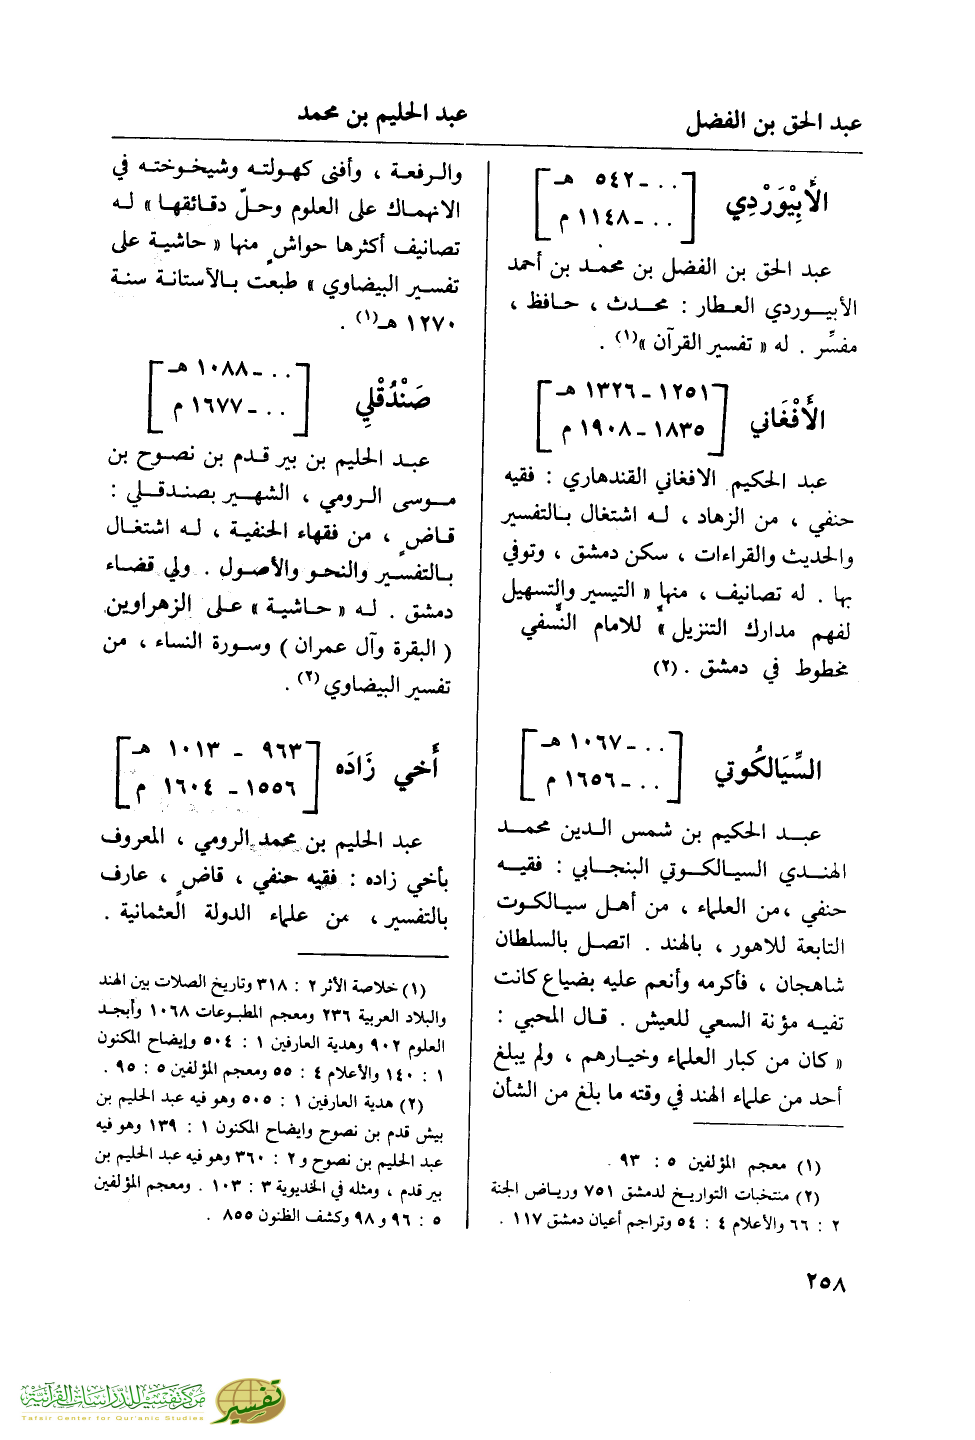 عبد الحق بن الفضل
عبد الحليم بن محمد
الأَبِيْوَرْدِي
[ . . - ٥٤٢ هـ
. . - ١١٤٨ م ]
عبد الحق بن الفضل بن محمد بن أحمد
الأبيوردي العطار : محدث ، حافظ ،
مفسِّر . له « تفسير القرآن »(١) .
الأَفْغَاني
[ ١٢٥١ - ١٣٢٦ هـ
١٨٣٥ - ١٩٠٨ م ]
عبد الحكيم الافغاني القندهاري : فقيه
حنفي ، من الزهاد ، له اشتغال بالتفسير
والحديث والقراءات ، سكن دمشق ، وتوفي
بها . له تصانيف ، منها « التيسير والتسهيل
لفهم مدارك التنزيل » للامام النَّسفي
مخطوط في دمشق . (٢)
السِّيَالكُوتي
[ . . - ١٠٦٧ هـ
. . - ١٦٥٦ م ]
عبد الحكيم بن شمس الدين محمد
الهندي السيالكوتي البنجابي : فقيه
حنفي ،من العلماء ، من أهل سيالكوت
التابعة للاهور ، بالهند . اتصل بالسلطان
شاهجان ، فأكرمه وأنعم عليه بضياع كانت
تفيه مؤنة السعي للعيش . قال المحبي :
« كان من كبار العلماء وخيارهم ، ولم يبلغ
أحد من علماء الهند في وقته ما بلغ من الشأن
(١) معجم المؤلفين ٥ : ٩٣ .
(٢) منتخبات التواريخ لدمشق ٧٥١ ورياض الجنة
٢ : ٦٦ والأعلام ٤ : ٥٤ وتراجم أعيان دمشق ١١٧ .
والرفعة ، وأفنى كهولته وشيخوخته في
الانهماك على العلوم وحلّ دقائقها » له
تصانيف أكثرها حواشٍ منها « حاشية على
تفسير البيضاوي » طبعت بالآستانة سنة
١٢٧٠ هـ(١) .
صَنْدُقْلِي
[ . . - ١٠٨٨ هـ
. . - ١٦٧٧ م ]
عبد الحليم بن بير قدم بن نصوح بن
موسى الرومي ، الشهير بصندقلي :
قاضٍ ، من فقهاء الحنفية ، له اشتغال
بالتفسير والنحو والأصول . ولي قضاء
دمشق . له « حاشية » على الزهراوين
( البقرة وآل عمران ) وسورة النساء ، من
تفسير البيضاوي(٢) .
أَخي زَادَه
[ ٩٦٣ - ١٠١٣ هـ
١٥٥٦ - ١٦٠٤ م ]
عبد الحليم بن محمد الرومي ، المعروف
بأخي زاده : فقيه حنفي ، قاضٍ ، عارف
بالتفسير ، من علماء الدولة العثمانية .
(١) خلاصة الأثر ٢ : ٣١٨ وتاريخ الصلات بين الهند
والبلاد العربية ٢٣٦ ومعجم المطبوعات ١٠٦٨ وأبجد
العلوم ٩٠٢ وهدية العارفين ١ : ٥٠٤ وإيضاح المكنون
١ : ١٤٠ والأعلام ٤ : ٥٥ ومعجم المؤلفين ٥ : ٩٥ .
(٢) هدية العارفين ١ : ٥٠٥ وهو فيه عبد الحليم بن
بيش قدم بن نصوح وايضاح المكنون ١ : ١٣٩ وهو فيه
عبد الحليم بن نصوح و٢ : ٣٦٠ وهو فيه عبد الحليم بن
بير قدم ، ومثله في الخديوية ٣ : ١٠٣ . ومعجم المؤلفين
٥ : ٩٦ و ٩٨ وكشف الظنون ٨٥٥ .
٢٥٨
مركز تفسير للدراسات القرآنية
Tafsir Center for Qur'anic Studies
تفسير